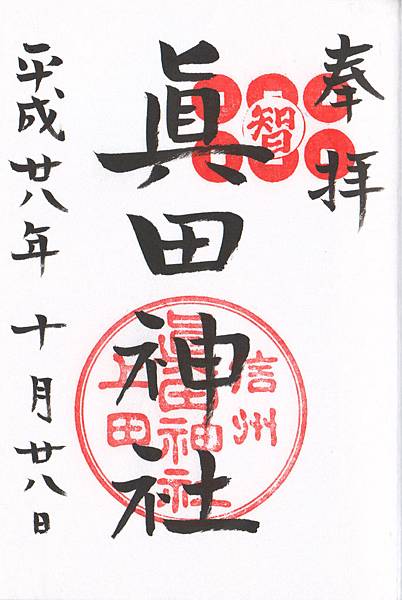 奉拝
智
眞田神社
信州
眞田神社
上田
平成廿八年 十月廿八日